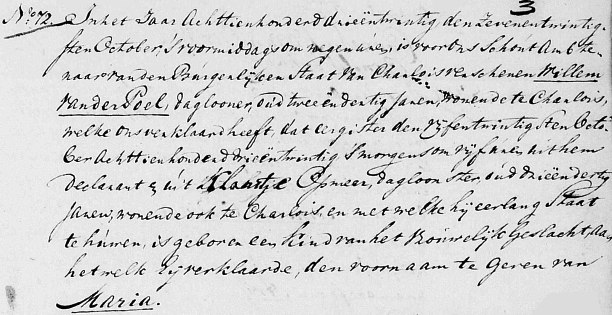 3
No. 72 In het Jaar Achttienhonderd drieëntwintig den Zevenentwintig-
sten October, 's voormiddags om negen uren, is voor ons Schout Ambte-
naar van den Burgerlijken Staat van Charlois verschenen Willem
van der Poel, daglooner, oud twee en dertig Jaren, wonende te Charlois,
welke ons verklaard heeft, dat eergister den vijfentwintigsten Octo-
ber Achttienhonderd drieëntwintig 's morgens om vijf uren uit hem
Declarant & uit Klaatje Opmeer, dagloonster, oud drieëndertig
Jaren, wonende ook te Charlois, en met welke hij eerlang Staat
te huwen, is geboren een Kind van het Vrouwelijk Geslacht, aan
het welk hij verklaarde, den voornaam te geven van
Maria.